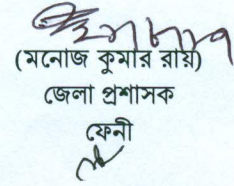 (মনোজ কুমার রায়)
জেলা প্রশাসক
ফেনী